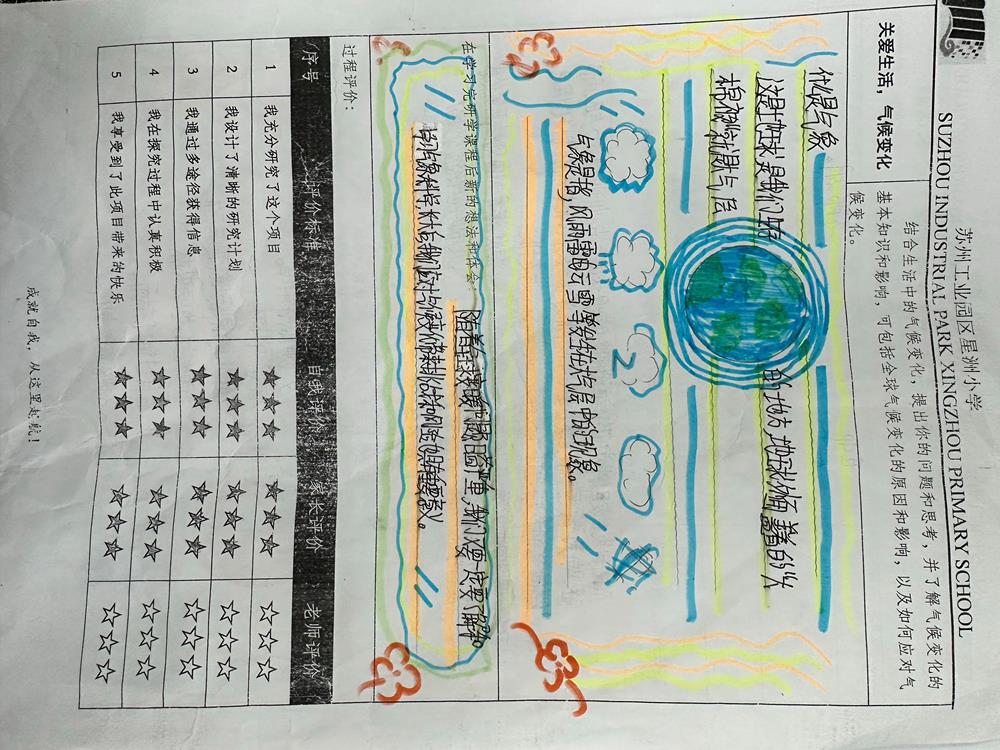 苏州工业园区星洲小学
SUZHOU INDUSTRIAL PARK XINGZHOU PRIMARY SCHOOL
关爱生活，气候变化
结合生活中的气候变化，提出你的问题和思考，并了解气候变化的
基本知识和影响，可包括全球气候变化的原因和影响，以及如何应对气
候变化。
什么是气象
这是地球是我们生存的地方 地球外面 盖着的外
棉衣被称为是大气层
气象是指，风雨雷的云雪等发生在大气层中的现象。
在学习完研学课程后新的想法和体会：
随着全球变暖问题日益严重，我们还要一定要了解和
学习气象科学知识
过程评价：
序号 评价标准 自我评价 家长评价 老师评价
1 我充分研究了这个项目 ★★★ ★★★ ☆☆☆
2 我设计了清晰的研究计划 ★★★ ★★★ ☆☆☆
3 我通过多途径获得信息 ★★★ ★★★ ☆☆☆
4 我在探究过程中认真积极 ★★★ ★★★ ☆☆☆
5 我享受到了此项目带来的快乐 ★★★ ★★★ ☆☆☆
成就自我，从这里起航！